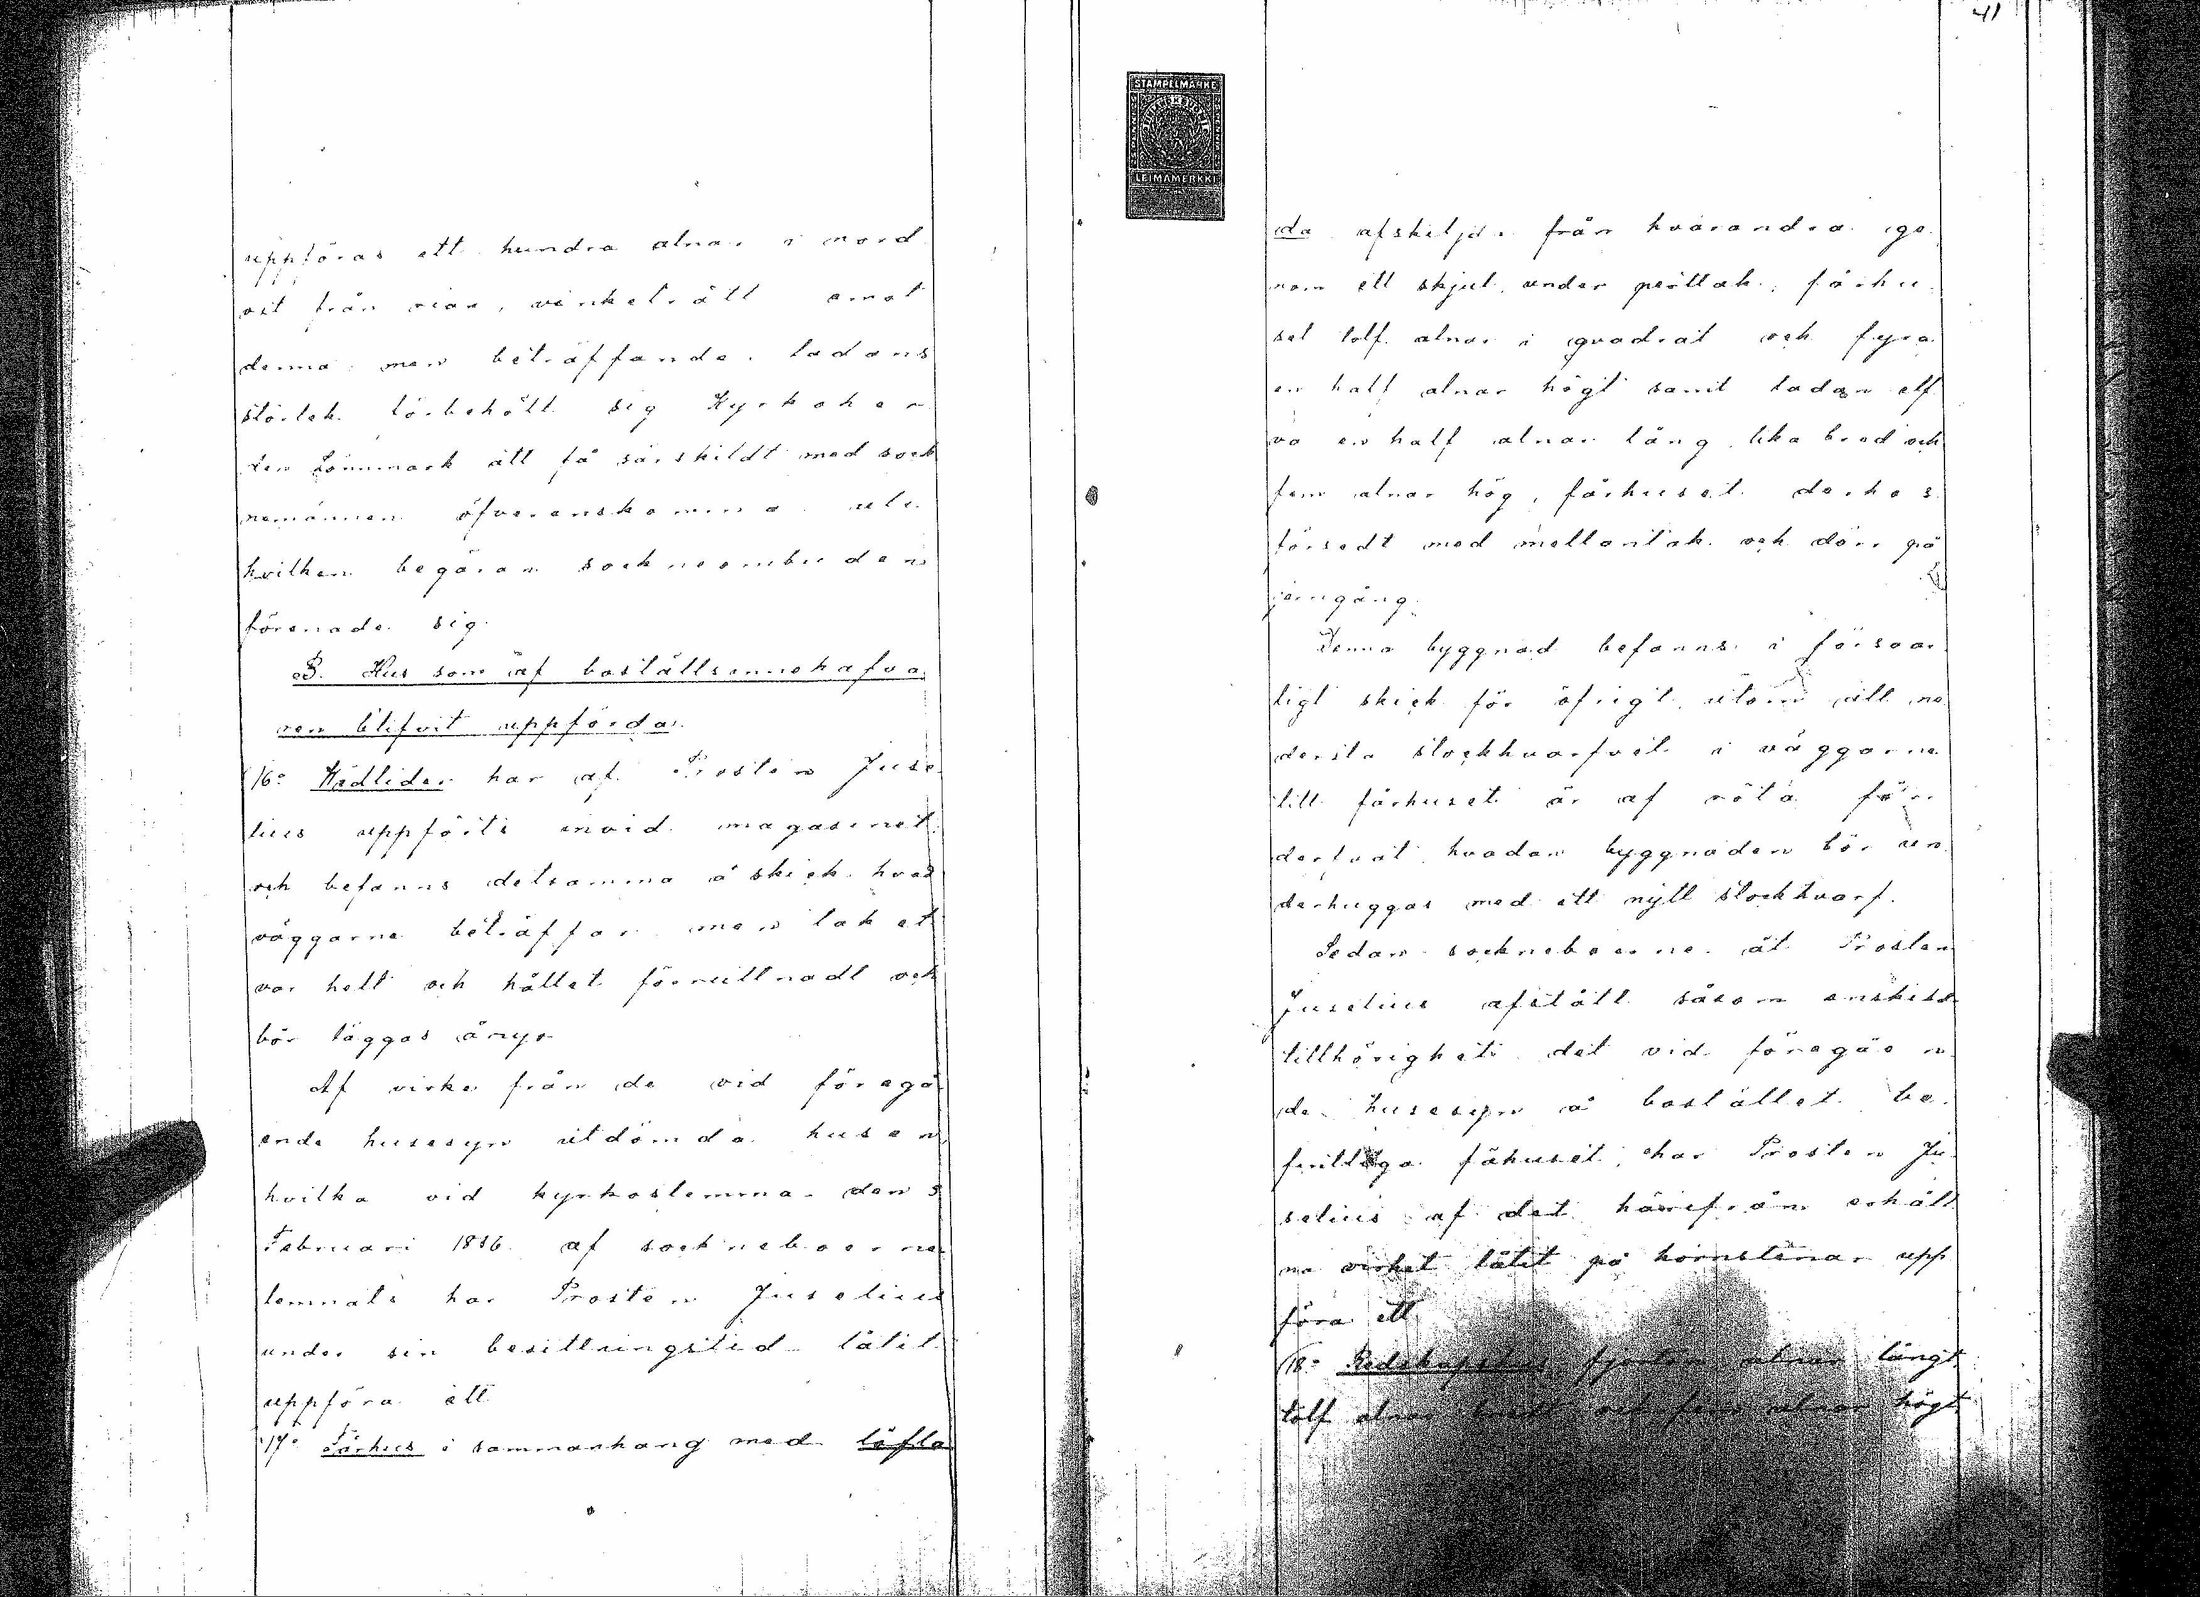 uppföras ett hundra alnar i nord
ost från rian, vinkelrätt emot
denna men beträffande ladans
storlek förbehöll sig Kyrkoher
den Lönnmark att få särskildt med sock
nemännen öfverenskomma uti
hvilken begäran sockneombuden
förenade sig.
B. Hus som af boställsinnehafva
ren blifvit uppförda.
16o Vedlider har af Prosten Juse
lius uppförts invid magasinet
och befanns detsamma å skick hvad
väggarne beträffar men taket
var helt och hållet förruttnadt och
bör läggas ånyo.
Af virke från de vid föregå
ende husesyn utdömda husen
hvilka vid kyrkostemma den 3
Februari 1886 af socknеboerne
lemnats har Prosten Juselius
under sin besittningstid låtit
uppföra ett
17o Fårhus i sammanhang med löfla
41
STÄMPELMÄRKE
LEIMAMERKKI
da afskiljda från hvarandra ge
nom ett skjul under perttak, fårhu
set tolf alnar i qvadrat och fyra
en half alnar högt samt ladan elf
va en half alnar lång lika bred och
fem alnar hög, fårhuset derhos
försedt med mellantak och dörr på
jerngång.
Denna byggnad befanns i försvar
ligt skick för öfrigt utom att ne
dersta stockhvarfvet i väggarne
till fårhuset är af röta för
derfvat hvadan byggnaden bör un
derhuggas med ett nytt stockhvarf.
Sedan sockneboerne åt Prosten
Juselius afstått såsom enskild
tillhörighet det vid föregåen
de husesyn å bostället be
fintliga fähuset, har Prosten Ju
selius af det härifrån erhåll
na virket låtit på hörnstenar upp
föra ett
18o Redskapshus fjorton alnar långt
tolf alnar bredt och fem alnar högt